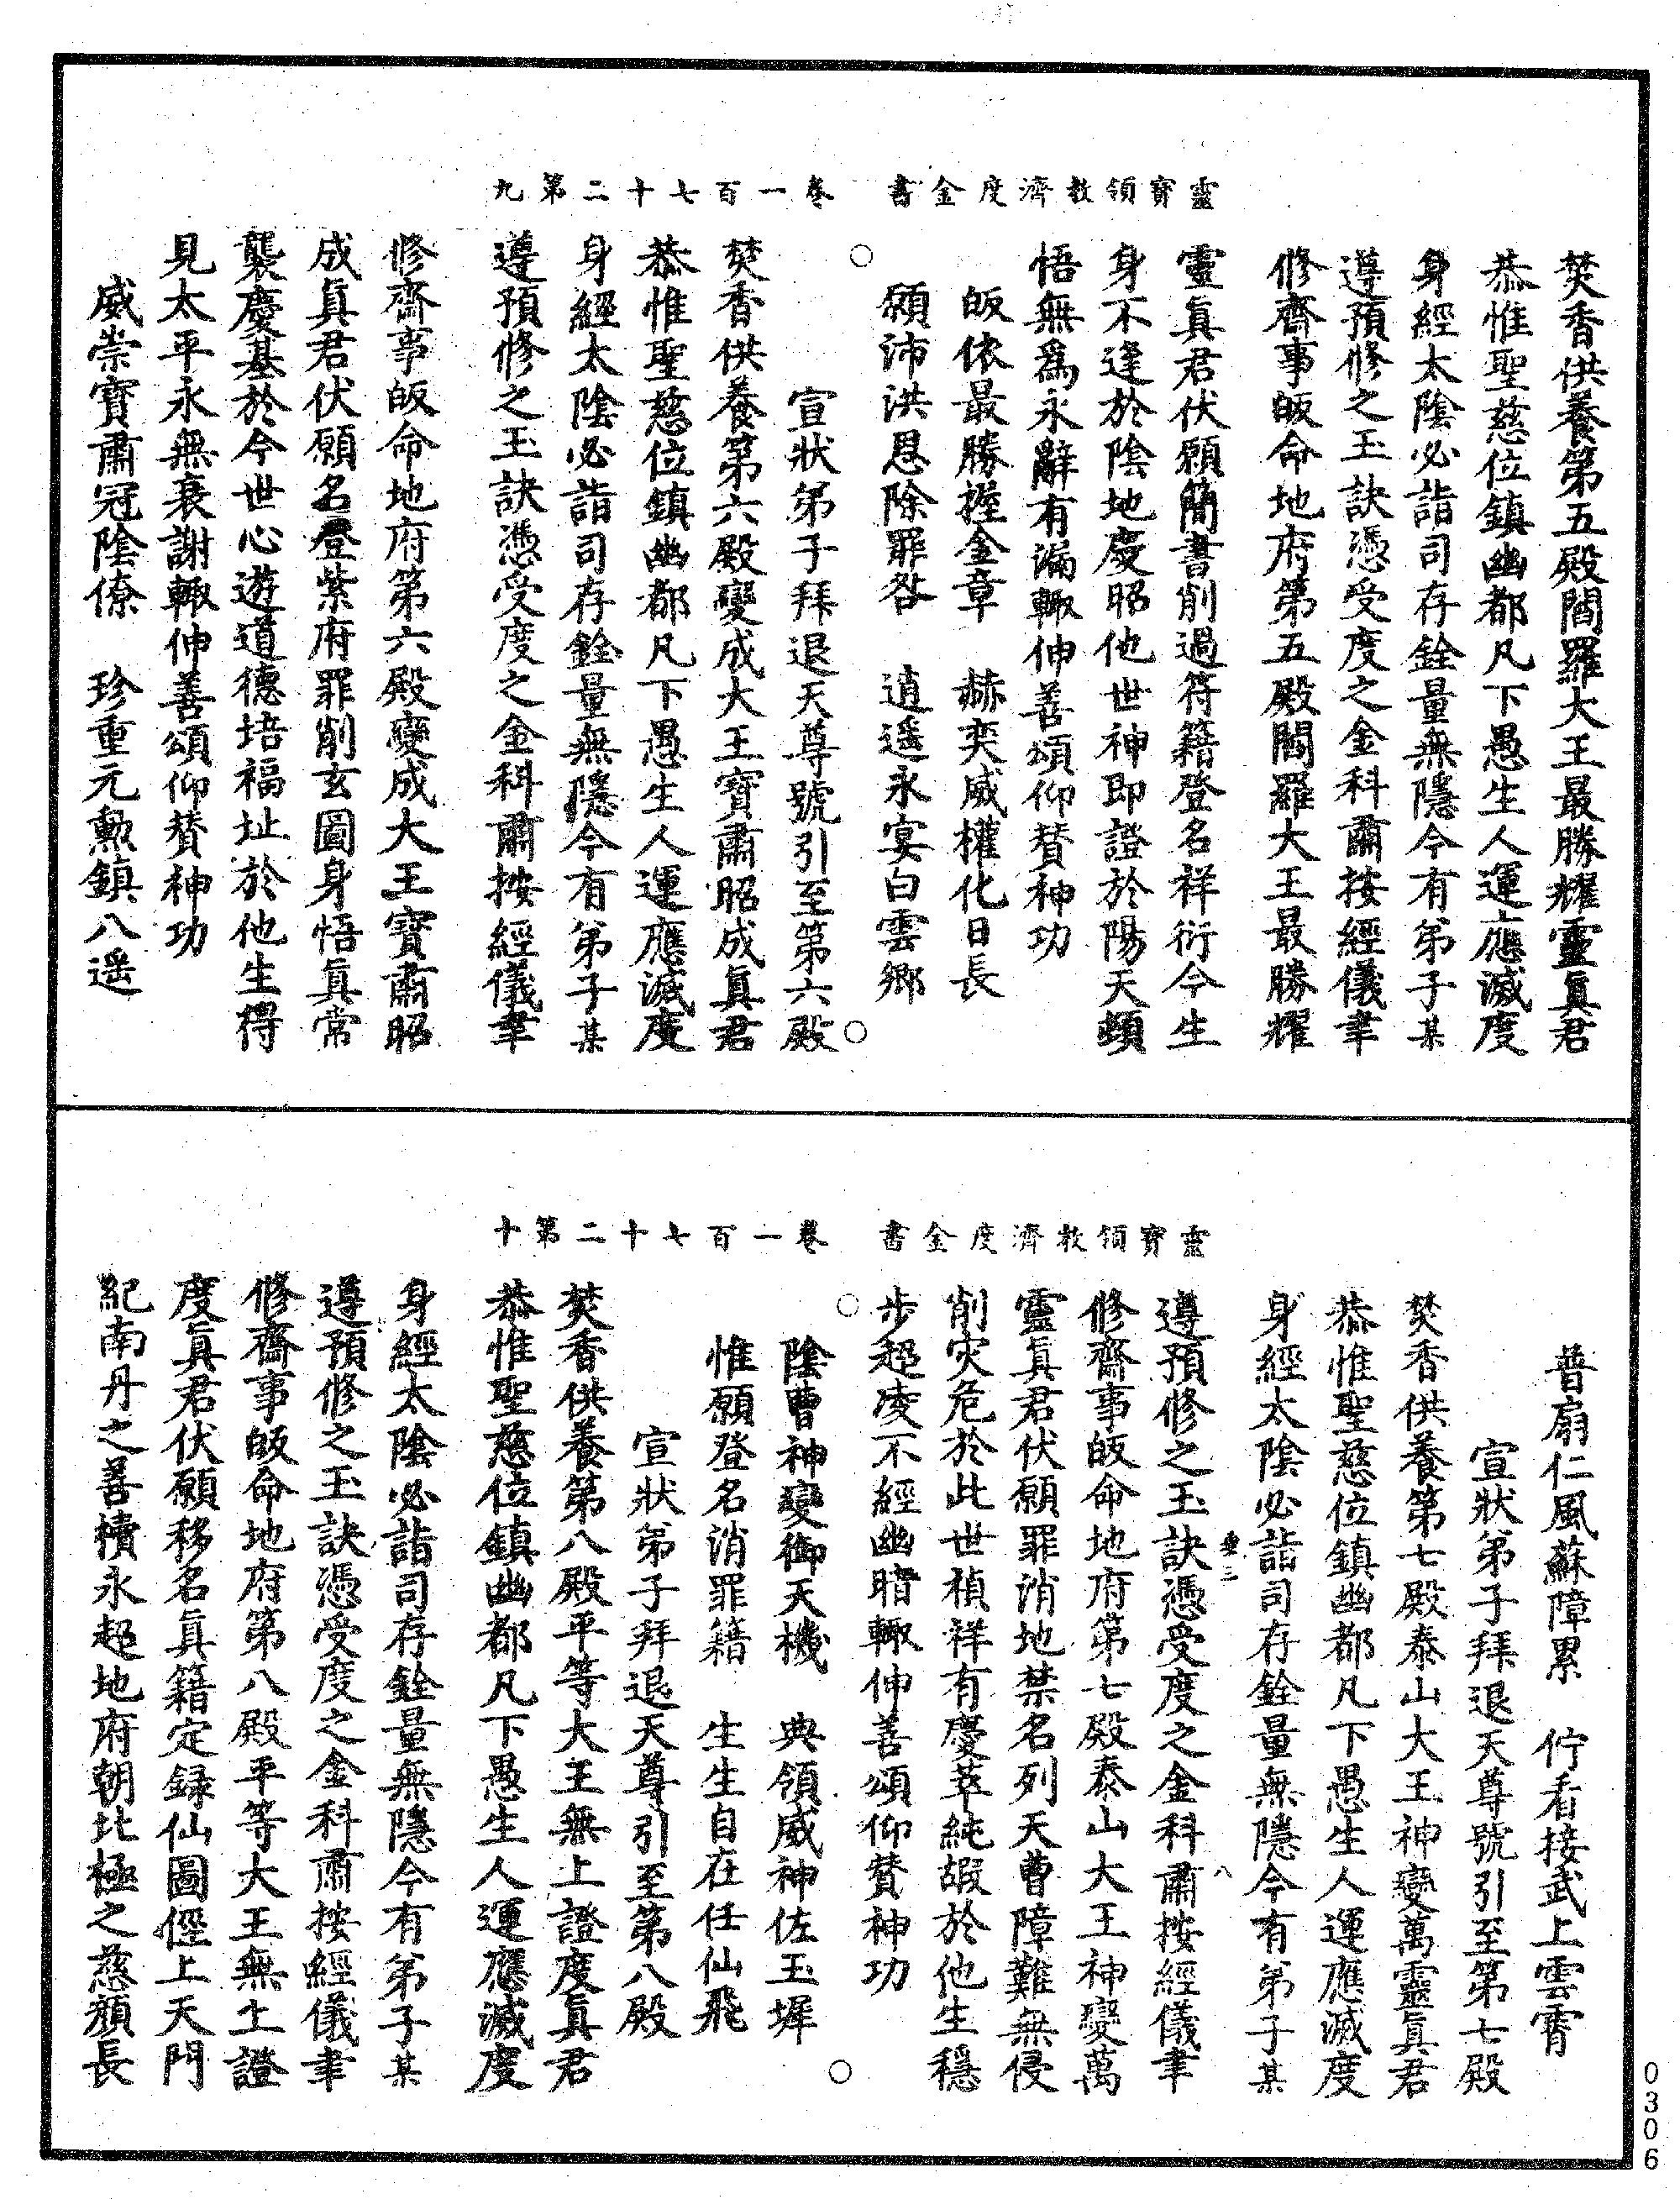 焚香供養第五殿閻羅大王最勝耀靈真君
恭惟聖慈位鎮幽都凡下愚生人運應滅度
身經太陰必詣司存銓量無隱今有弟子某
遵預修之玉訣憑受度之金科肅按經儀聿
修齋事皈命地府第五殿閻羅大王最勝耀
靈真君伏願簡書削過符籍登名祥衍今生
身不逢於陰地慶昭他世神即證於陽天頓
悟無爲永辭有漏輙伸善頌仰賛神功
皈依最勝握金章　赫奕威權化日長
願沛洪恩除罪咎　逍遥永宴白雲鄉
靈寶領教濟度金書
卷一百七十二第九
○　○
宣狀弟子拜退天尊號引至第六殿
焚香供養第六殿變成大王寶肅昭成真君
恭惟聖慈位鎮幽都凡下愚生人運應滅度
身經太陰必詣司存銓量無隱今有弟子某
遵預修之玉訣憑受度之金科肅按經儀聿
修齋事皈命地府第六殿變成大王寶肅昭
成真君伏願名登紫府罪削玄圖身悟真常
襲慶基於今世心遊道德培福址於他生得
見太平永無衰謝輙伸善頌仰賛神功
威崇寶肅冠陰僚　珍重元勲鎮八遥
普扇仁風蘇障累　佇看接武上雲霄
宣狀弟子拜退天尊號引至第七殿
焚香供養第七殿泰山大王神變萬靈真君
恭惟聖慈位鎮幽都凡下愚生人運應滅度
身經太陰必詣司存銓量無隱今有弟子某
八
遵預修之玉訣憑受度之金科肅按經儀聿
修齋事皈命地府第七殿泰山大王神變萬
靈真君伏願罪消地禁名列天曹障難無侵
削灾危於此世禎祥有慶萃純嘏於他生穩
步超凌不經幽暗輙伸善頌仰賛神功
靈寶領教濟度金書
卷一百七十二第十
○　○
陰曹神變御天機　典領威神佐玉墀
惟願登名消罪籍　生生自在任仙飛
宣狀弟子拜退天尊引至第八殿
焚香供養第八殿平等大王無上證度真君
恭惟聖慈位鎮幽都凡下愚生人運應滅度
身經太陰必詣司存銓量無隱今有弟子某
遵預修之玉訣憑受度之金科肅按經儀聿
修齋事皈命地府第八殿平等大王無上證
度真君伏願移名真籍定録仙圖俓上天門
紀南丹之善槓永超地府朝北極之慈顔長
0306